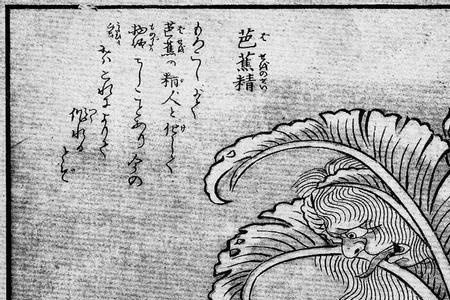 芭蕉精
もろこしにて
芭蕉の精人と化して
物語せしことあり今の
謡はこれによりて
作れる
とぞ